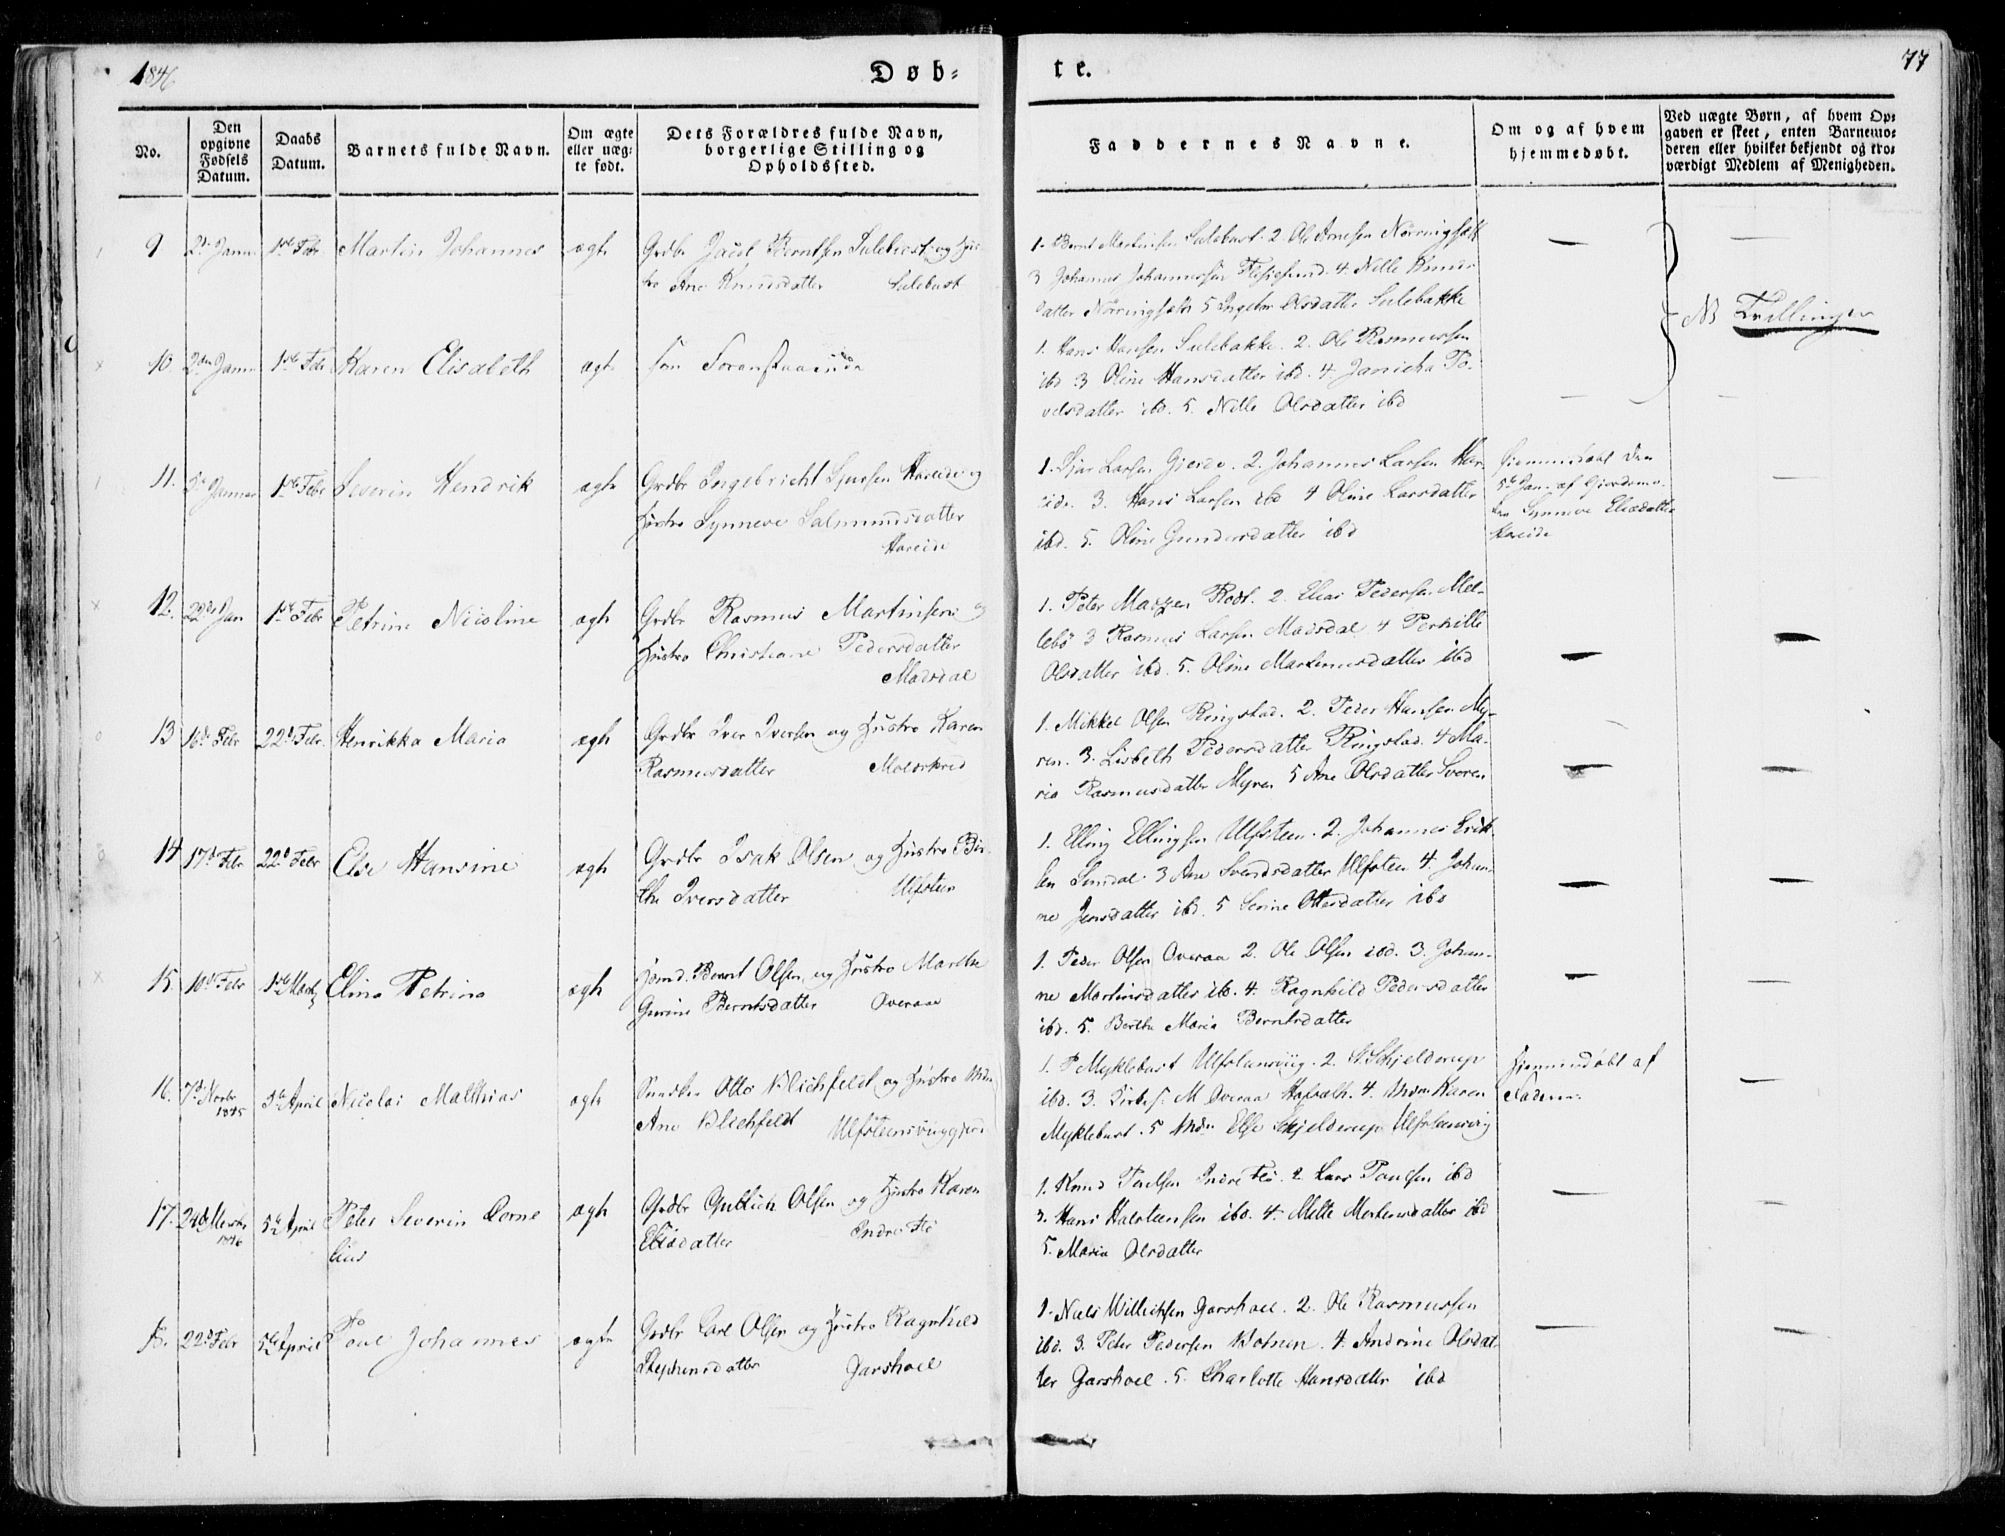 1846
Døb-
te.
77
No.
Den opgivne Fødsels Datum.
Daabs Datum.
Barnets fulde Navn.
Om ægte eller uæg-te født.
Dets Forældres fulde Navn, borgerlige Stilling og Opholdssted.
Faddernes Navne.
Om og af hvem hjemmedøbt.
Ved uægte Børn, af hvem Op-gaven er skeet, enten Barnemo-deren eller hvilket bekjendt og tro-værdigt Medlem af Menigheden.
9 2d Janu 1ste Febr Martin Johannes ægte Grdbr Jacob Berntsen Sulebust og Hus-
tro Ane Knudsdatter Sulebust
1. Bernt Martinsen Sulebust. 2. Ole Arnesen Nörringsæt
3 Johannes Johannessen 4. Nille Knuds
datter Nörringsæt 5 Ingebor Olsdatter Sulebakke
NB Tvillinger
10. 2den Janu 1ste Feb Karen Elisabeth ægte som Foranstaaende
1. Hans Hansen Sulebakke. 2. Ole Rasmussen
ibd 3 Oline Hansdatter ibd. 4. Janicha To-
velsdatter ibd. 5. Nille Olsdatter ibd
11. 2d Januar 1ste Febr Severin Hendrik ægte Grdbr Ingebricht Sjursen Hareide og
Hustro Synneve Salmundsdatter
Hareide
1. Sjur Larsen Gjerde. 2. Johannes Larsen Har-
eide. 3. Hans Larsen ibd 4 Oline Larsdatter
ibd. 5. Oline Gundersdatter ibd
Hjemmedøbt den
5te Jan. af Gjordemo-
dren Synneve Eliasdatter
Hareide
12. 22d Jan 1ste Febr Petrine Nicoline ægte Grdbr Rasmus Martinsen og
Hustro Christiane Pedersdatter
Madsdal
1. Peter Rodt. 2. Elias Pedersen Mel-
lebö 3 Rasmus Larsen Madsdal 4 Pernille
Olsdatter ibd. 5. Oline Martinusdatter ibd
13 16d Febr 22d Febr. Henrikka Maria ægte Grdbr Iver Iversen og Hustro Karen
Rasmusdatter Molskred
1. Mikkel Olsen Ringstad. 2. Peder Hansen My-
ren. 3. Lisbeth Pedersdatter Ringstad. 4 Ma-
ria Rasmusdatter Myren 5 Ane Olsdatter
14 17d Febr 22d Febr Else Hansine ægte Grdbr Isak Olsen og Hustro Bir-
the Iversdatter Ulfsteen
1. Elling Ellingsen Ulfsteen. 2. Johannes Erik-
sen 3 Ane Svendsdatter Ulfsteen 4. Johan-
ne Jensdatter ibd. 5 Serine Ottersdatter ibd
15. 10d Febr 1ste Marts Elina Petrina ægte Bernt Olsen og Hustro Marthe
Gurine Berntsdatter Overaae
1. Peder Olsen Overaa 2. Ole Olsen ibd. 3. Johan-
ne Martinsdatter ibd. 4. Ragnhild Pedersdatter
ibd. 5. Berthe Maria Berntsdatter
16. 7d 1845 5te April Nicolai Mathias ægte Otto Blichfeldt og Hustro Mdm
Ane Blichfeldt Ulfsteensviiggjerd
1. P Myklebust Ulfsteensviig. 2. Schjelderup
ibd. 3. M Overaa 4. Mdm Karen
Myklebust. 5 Mdm Else Schjelderup Ulfsteensviig
Hjemmedøbt af
Faderen.
17. 24d Marts 1846 5te April Peter Severin Corne-
lius
ægte Grdbr Guttich Olsen og Hustro Karen
Elisdatter Indre Flö
1. Knud Poulsen Indre Flö. 2 Lars Poulsen ibd
3. Hans Halsteensen ibd. 4. Mette Mortensdatter ibd
5. Maria Olsdatter
18. 22d Febr 5te April Poul Johannes ægte Grdbr Carl Olsen og Hustro Ragnhild
Stephensdatter Garshoel
1. Niels Willichsen Garshoel. 2. Ole Rasmussen
ibd. 3. Peter Pedersen Botnen. 4. Andrine Olsdat-
ter Garshoel. 5. Charlotte Hansdatter ibd